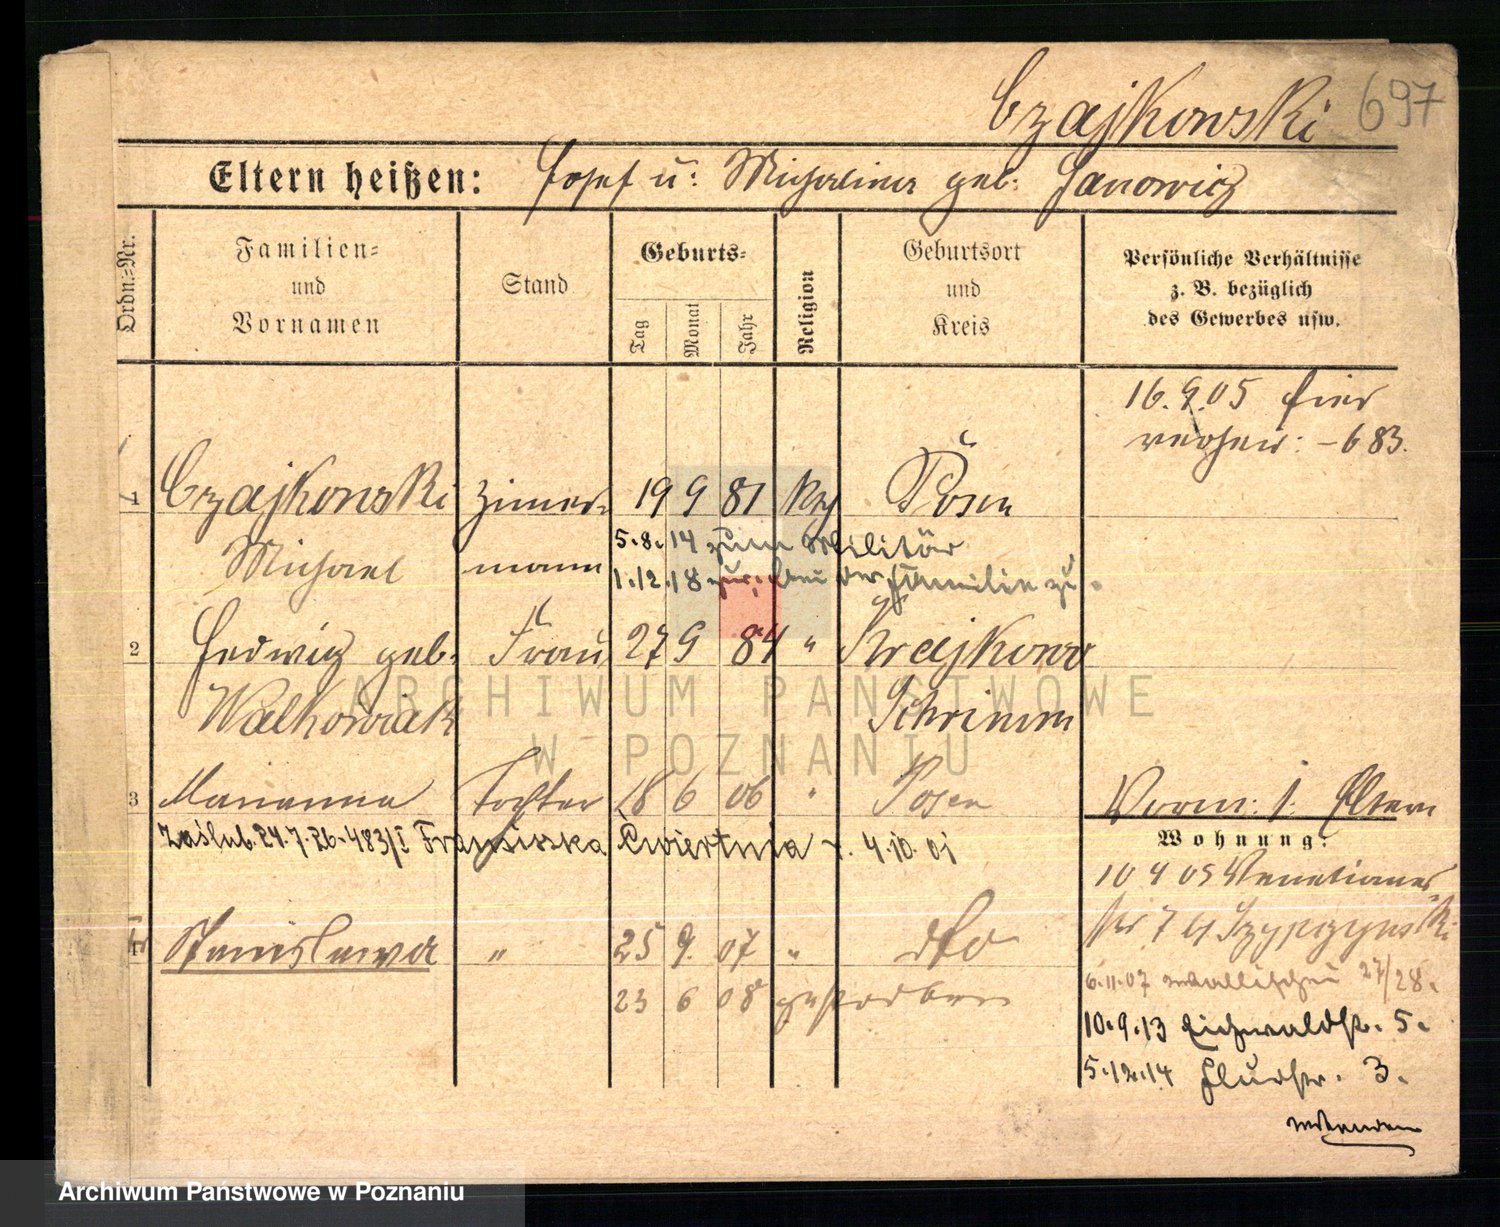 Czajkowski 697
Eltern heißen: Josef u: Michalina geb: Janowicz
Ordn.-Nr.
Familien- und Vornamen
Stand
Geburts-
Tag
Monat
Jahr
Religion
Geburtsort und Kreis
Persönliche Verhältnisse z. B. bezüglich des Gewerbes usw.
16.9.05 hier
verheir: -683.
1 Czajkowski Zimer- 19 9 81 kath Posen
Michael mann
5.8.14 zum Militär
1.12.18 zur Familie zu.
2 Hedwig geb. Frau 27 9 84 " Krajkowo
Walkowiak Schrimm
3 Marianna Tochter 18 6 06 " Posen
Vorm: s: Eltern
Zaślub. 24.7.26-483/I Franciszka Ćwiertnia 4.10.01
Wohnung:
10 4 05 Venetianer-
str 7 bei Szypczynski
4 Stanislawa " 25 9. 07 " dto
6.11.07 Wallischei 27/28.
23 6 08 gestorben
10.9.13 Eichwaldstr. 5.
5.12.14 Flurstr. 3.
ARCHIWUM PAŃSTWOWE
W POZNANIU
Archiwum Państwowe w Poznaniu